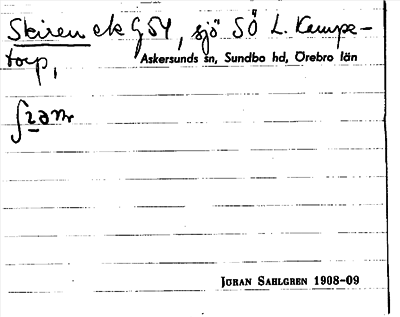 Skiren ek G54, sjö SÖ L. Kampe-
torp,
Askersunds sn, Sundbo hd, Örebro län
JÖRAN SAHLGREN 1908-09